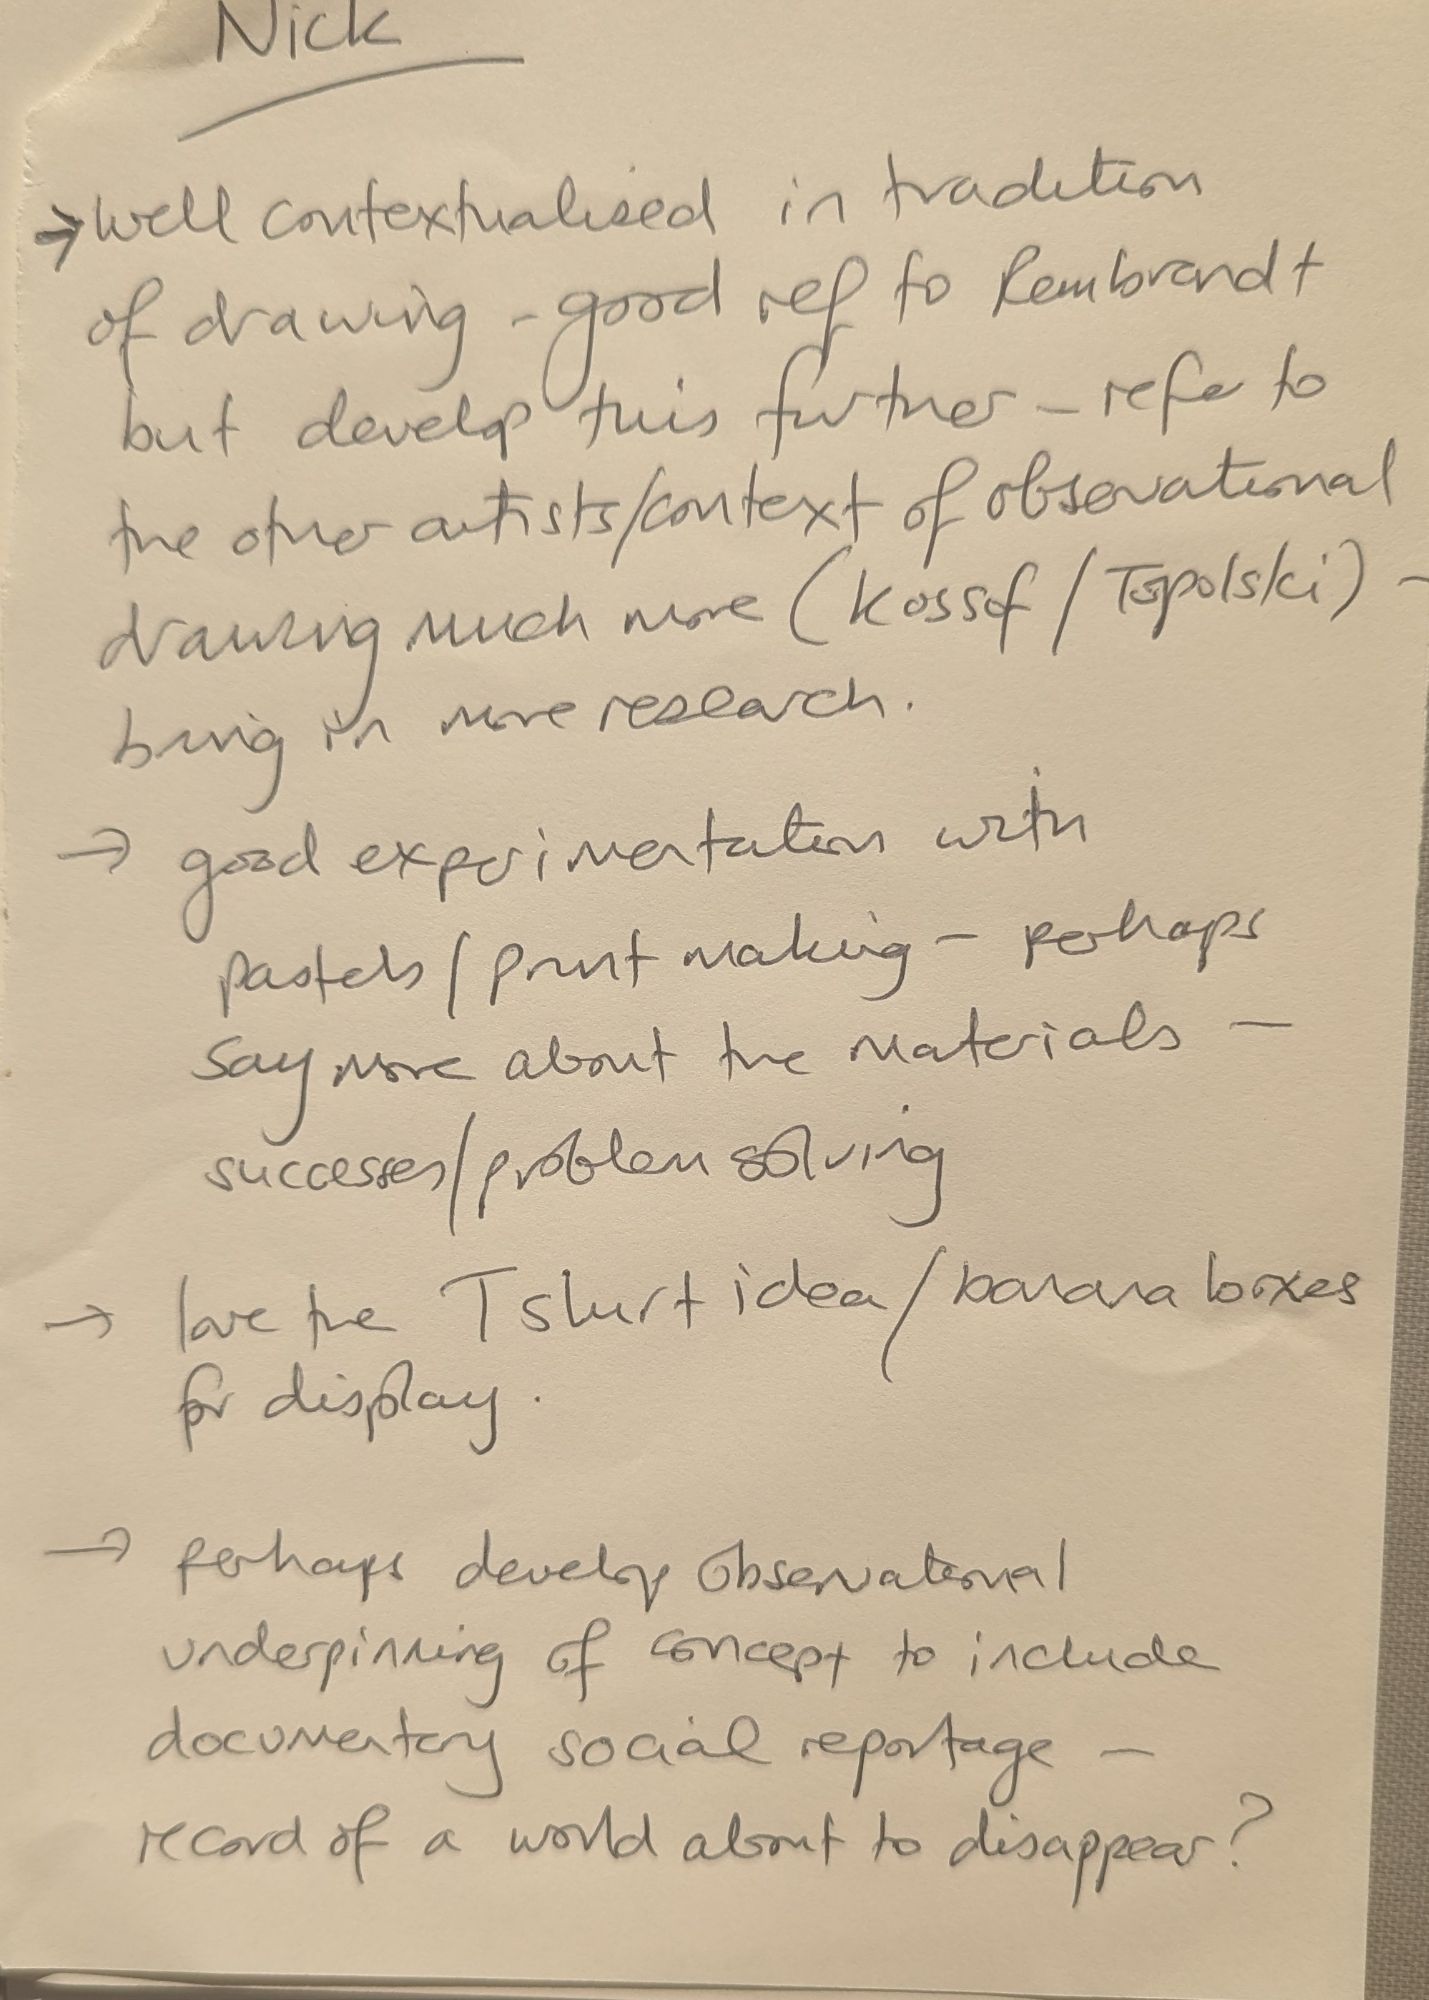 Nick
→ well contextualised in tradition
of drawing - good ref to Rembrandt
but develop this further - refer to
the other artists/context of observational
drawing much more (Kossof / Topolski) -
bring in more research.
→ good experimentation with
pastels / print making - perhaps
say more about the materials -
successes/problem solving
→ love the T shirt idea / banana boxes
for display.
→ perhaps develop observational
underpinning of concept to include
documentary social reportage -
record of a world about to disappear?